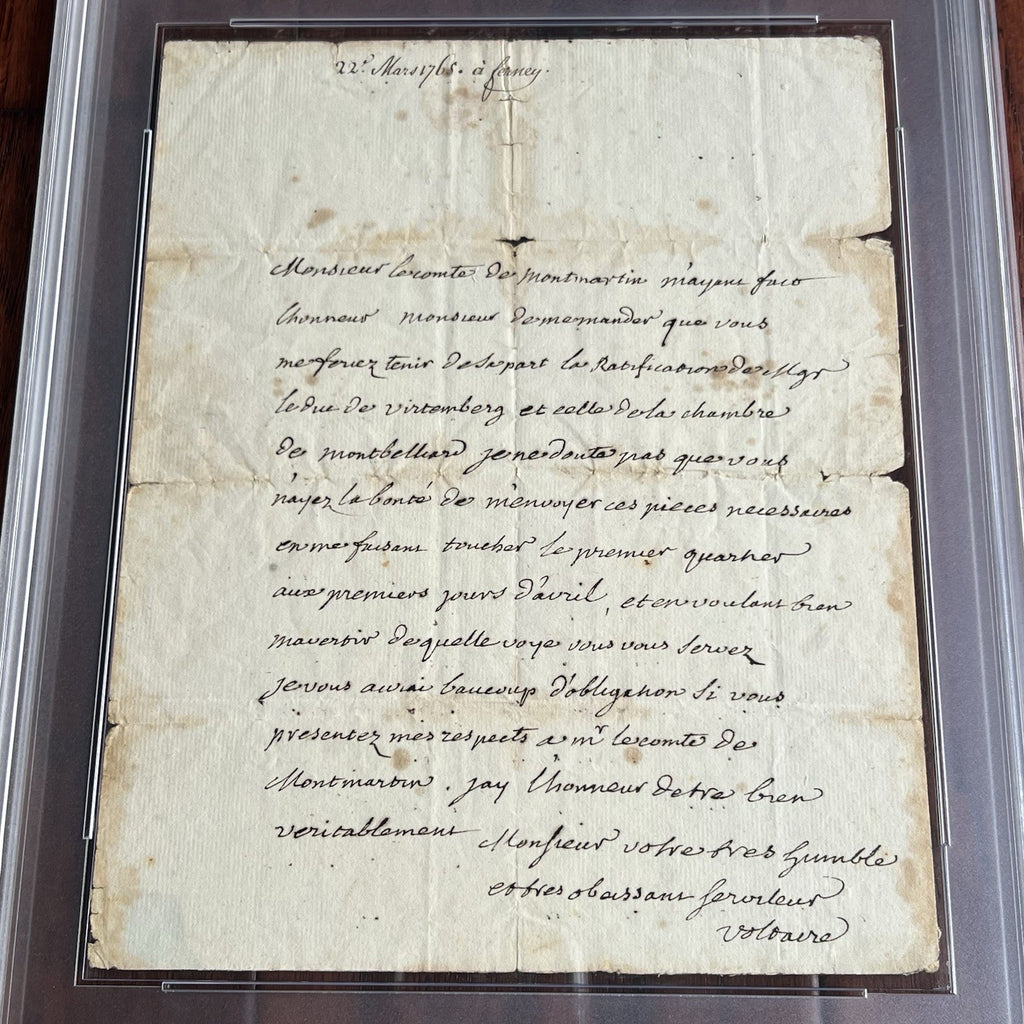 22e Mars 1765. à ferney.
Monsieur le comte de Montmartin m'ayant fait
l'honneur monsieur de me mander que vous
me feriez tenir de sa part la Ratification de Mgr
le duc de virtemberg et celle de la chambre
de montbelliard je ne doute pas que vous
n'ayez la bonté de m'envoyer ces pieces necessaires
en me faisant toucher le premier quartier
aux premiers jours d'avril, et en voulant bien
mavertir de quelle voye vous vous servez
je vous aurai baucoup d'obligation si vous
presentez mes respects a mr le comte de
Montmartin. jay l'honneur detre bien
veritablement
Monsieur votre tres humble
et tres obeissant serviteur
voltaire